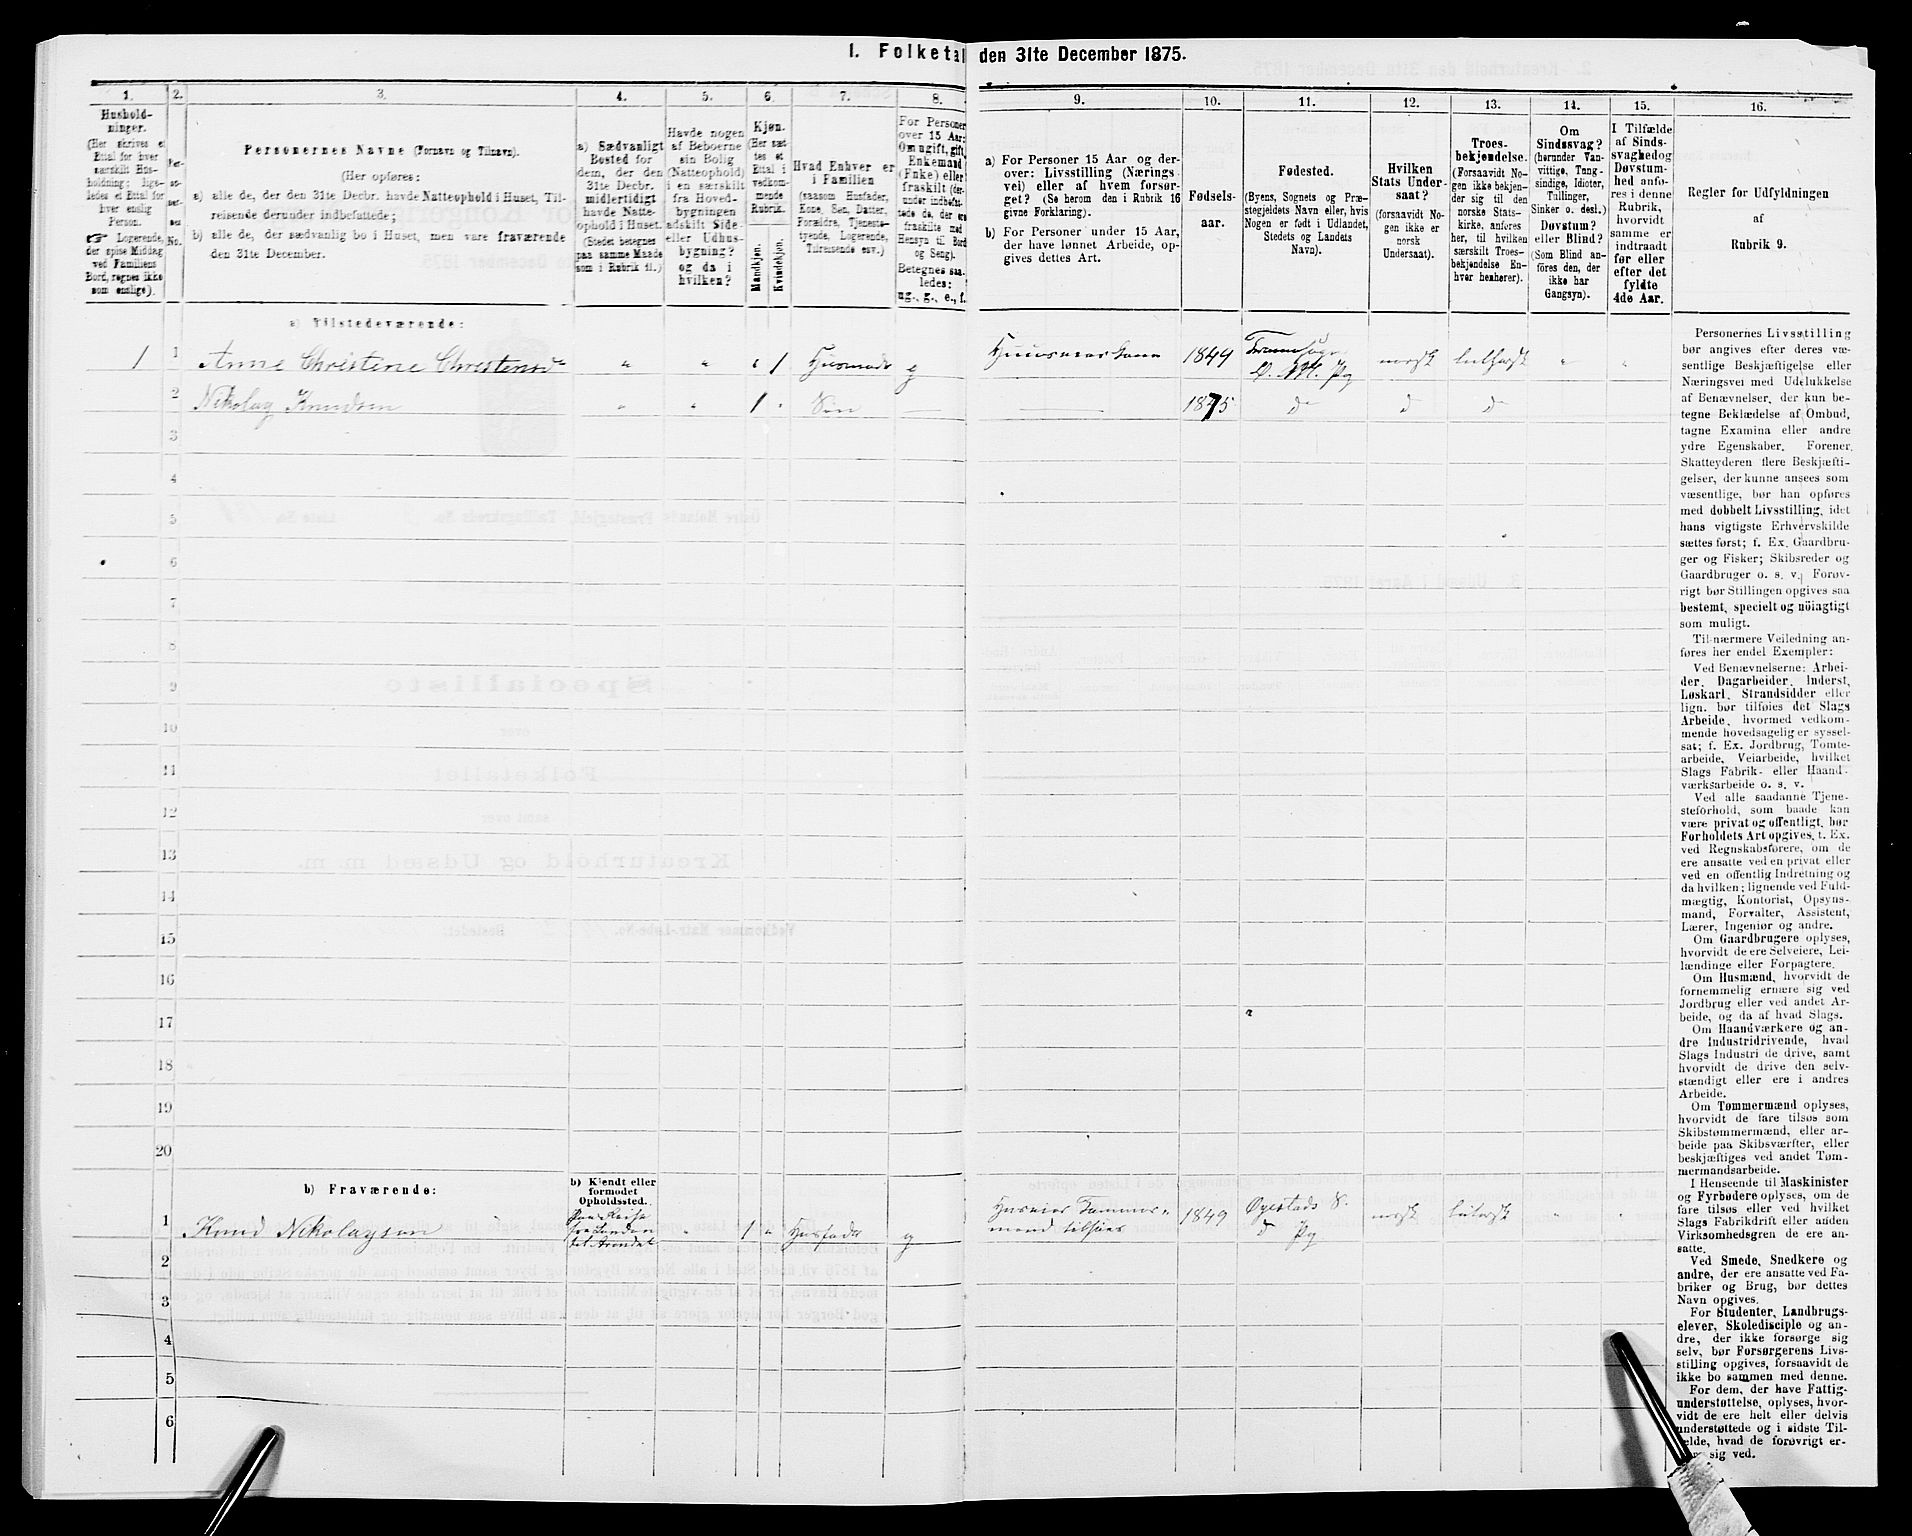 1. Folketal den 31te December 1875.
1.
Hushold-
ninger.
(Her skrives et
Ettal for hver
særskilt Hus-
holdning; lige-
ledes et Ettal for
hver enslig
Person.
☞ Logerende,
der spise Middag
ved Familiens
Bord, regnes ikke
som enslige).
2.
Per-
so-
ner-
nes
No.
3.
Personernes Navne (Fornavn og Tilnavn).
(Her opføres:
a) alle de, der den 31te Decbr. havde Natteophold i Huset, Til-
reisende derunder indbefattede;
b) alle de, der sædvanlig bo i Huset, men vare fraværende
den 31te December.
4.
a) Sædvanligt
Bosted for
dem, der den
31te Decbr.
midlertidigt
havde Natte-
ophold i Huset.
(Stedet betegnes
paa samme Maade
som i Rubrik 11.)
5.
Havde nogen
af Beboerne
sin Bolig
(Natteophold)
i en særskilt
fra Hoved-
bygningen
adskilt Side-
eller Udhus-
bygning?
og da i
hvilken?
6.
Kjøn.
(Her sæt-
tes et
Ettal i
vedkom-
mende
Rubrik.
Mandkjøn.
Kvindekjøn.
7.
Hvad Enhver er
i Familien
(saasom Husfader,
Kone, Søn, Datter,
Forældre, Tjeneste-
tyende, Logerende,
Tilreisende osv.)
8.
For Personer
over 15 Aar:
Om ugift, gift,
Enkemand
(Enke) eller
fraskilt (der-
under indbefat-
tede de, der ere
fraskilte med
Hensyn til Bord
og Seng).
Betegnes saa-
ledes:
ug., g., e., f.
9.
a) For Personer 15 Aar og der-
over: Livsstilling (Nærings-
vei) eller af hvem forsør-
get? (Se herom den i Rubrik 16
givne Forklaring).
b) For Personer under 15 Aar,
der have lønnet Arbeide, op-
gives dettes Art.
10.
Fødsels-
aar.
11.
Fødested.
(Byens, Sognets og Præ-
stegjeldets Navn eller, hvis
Nogen er født i Udlandet,
Stedets og Landets
Navn).
12.
Hvilken
Stats Under-
saat?
(forsaavidt No-
gen ikke er
norsk
Undersaat).
13.
Troes-
bekjendelse.
(Forsaavidt No-
gen ikke bekjen-
der sig til den
norske Stats-
kirke, anføres
her, til hvilken
særskilt Troes-
bekjendelse En-
hver henhører).
14.
Om
Sindssvag?
(herunder Van-
vittige, Tung-
sindige, Idioter,
Tullinger,
Sinker o. desl.)
Døvstum?
eller Blind?
(Som Blind an-
føres den, der
ikke har
Gangsyn).
15.
I Tilfælde
af Sinds-
svaghed og
Døvstum-
hed anfø-
res i denne
Rubrik,
hvorvidt
samme er
indtraadt
før eller
efter det
fyldte
4de Aar.
16.
Regler for Udfyldningen
af
Rubrik 9.
a) Tilstedeværende:
1 1 Anne Christine Christensd " " " 1 Husmodr g Huusmands Kone 1849 Tromø Sogn Ø. M. Pg norsk luthersk " "
2 Nikolay Knudsen " " 1 " Søn — — 1875 d d d
3
4
5
6
7
8
9
10
11
12
13
14
15
16
17
18
19
20
b) Fraværende:
b) Kjendt eller
formodet
Opholdssted.
1 Knud Nikolaysen Paa Reise fra London til Arendal " 1 " Husfadr g Huseier Tømmer-mand tilsøes 1849 Øyestads S. d Pg norsk luthersk " "
2
3
4
5
6
Personernes Livsstilling
bør angives efter deres væ-
sentlige Beskjæftigelse eller
Næringsvei med Udelukkelse
af Benævnelser, der kun be-
tegne Beklædelse af Ombud,
tagne Examina eller andre
ydre Egenskaber. Forener
Skatteyderen flere Beskjæfti-
gelser, der kunne ansees som
væsentlige, bør han opføres
med dobbelt Livsstilling, idet
hans vigtigste Erhvervskilde
sættes først; f. Ex. Gaardbru-
ger og Fisker; Skibsreder og
Gaardbruger o. s. v. Forøv-
rigt bør Stillingen opgives saa
bestemt, specielt og nöiagtigt
som muligt.
Til nærmere Veiledning an-
føres her endel Exempler:
Ved Benævnelserne: Arbei-
der, Dagarbeider, Inderst,
Løskarl, Strandsidder eller
lign. bør tilføies det Slags
Arbeide, hvormed vedkom-
mende hovedsagelig er syssel-
sat; f. Ex. Jordbrug, Tomte-
arbeide, Veiarbeide, hvilket
Slags Fabrik- eller Haand-
værksarbeide o. s. v.
Ved alle saadanne Tjene-
steforhold, som baade kan
være privat og offentligt, bør
Forholdets Art opgives, t. Ex.
ved Regnskabsførere, om de
ere ansatte ved en privat eller
ved en offentlig Indretning og
da hvilken; lignende ved Fuld-
mægtig, Kontorist, Opsyns-
mand, Forvalter, Assistent,
Lærer, Ingeniør og andre.
Om Gaardbrugere oplyses,
hvorvidt de ere Selveiere, Lei-
lændinge eller Forpagtere.
Om Husmænd, hvorvidt de
fornemmelig ernære sig ved
Jordbrug eller ved andet Ar-
beide, og da af hvad Slags.
Om Haandværkere og an-
dre Industridrivende, hvad
Slags Industri de drive, samt
hvorvidt de drive den selv-
stændigt eller ere i andres
Arbeide.
Om Tømmermænd oplyses,
hvorvidt de fare tilsøs som
Skibstømmermænd, eller ar-
beide paa Skibsværfter, eller
beskjæftiges ved andet Tøm-
mermandsarbeide.
I Henseende til Maskinister
og Fyrbødere oplyses, om de
fare tilsøs eller ved hvilket
Slags Fabrikdrift eller anden
Virksomhedsgren de ere an-
satte.
Ved Smede, Snedkere og
andre, der ere ansatte ved Fa-
briker og Brug, bør dettes
Navn opgives.
For Studenter, Landbrugs-
elever, Skoledisciple og an-
dre, der ikke forsørge sig
selv, bør Forsørgerens Livs-
stilling opgives, forsaavidt de
ikke bo sammen med denne.
For dem, der have Fattig-
understøttelse, oplyses, hvor-
vidt de ere helt eller delvis
understøttede og i sidste Til-
fælde, hvad de forøvrigt er-
sig ved.